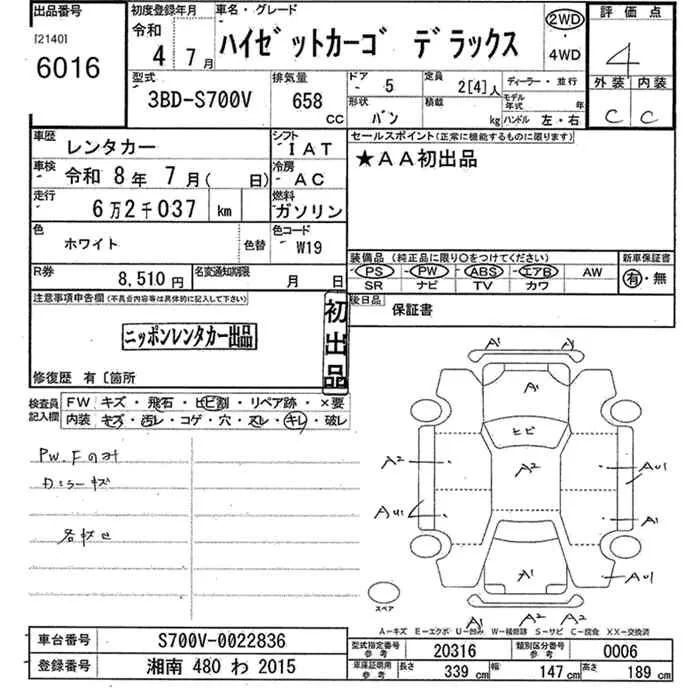 出品番号
[2140]
6016
初度登録年月
令和 4年 7月
車名・グレード
ハイゼットカーゴ デラックス
2WD
・
4WD
評価点
4
外装 内装
C C
型式
3BD-S700V
排気量
658 CC
ドア
5
定員
2[4]人
ディーラー・並行
形状
バン
積載
kg
モデル年式 年
ハンドル 左・右
車歴
レンタカー
シフト
IAT
セールスポイント(正常に機能するものに限ります)
★AA初出品
車検
令和 8年 7月( 日)
冷房
AC
走行
6万2千037 km
燃料
ガソリン
色
ホワイト
色替
色コード
W19
装備品(純正品に限り○をつけてください)
PS PW ABS エアB AW
SR ナビ TV カワ
新車保証書
有・無
R券
8,510円
名変通知期限
月 日
注意事項申告欄(不具合内容等は具体的に記入して下さい)
初出品
後日品
保証書
ニッポンレンタカー出品
修復歴 有〔箇所
検査員記入欄
FW キズ・飛石・ヒビ割・リペア跡・×要
内装 キズ・汚レ・コゲ・穴・スレ・キレ・破レ
PW.Fのみ
A1
A1
ヒビ
A2
A2
AU1
AU1
A1
A1
AU1
A1 A2 A2
スペア
A-キズ E-エクボ U-凹み W-補修跡 S-サビ C-腐食 XX-交換済
車台番号
S700V-0022836
型式指定番号
参考
20316
類別区分番号
参考
0006
登録番号
湘南 480 わ 2015
車庫証明用
参考
長さ
339 cm
幅
147 cm
高さ
189 cm